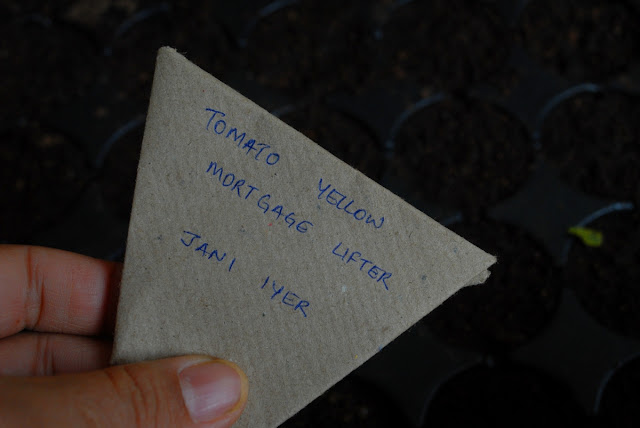 TOMATO YELLOW
MORTGAGE LIFTER
JANI IYER